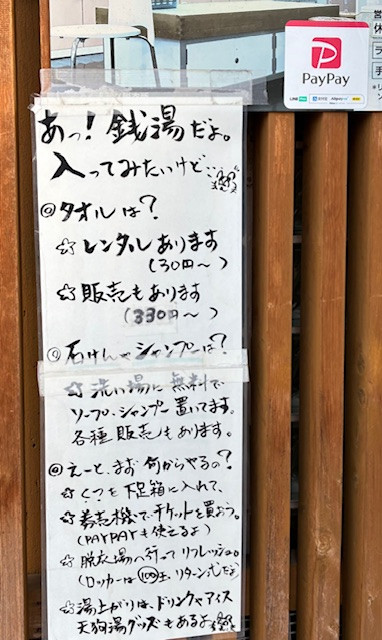 PayPay
営
休
ラ
手
あっ!銭湯だよ。
入ってみたいけど…
◎タオルは?
☆レンタルあります
(30円〜)
☆販売もあります
(330円〜)
◎石けんやシャンプーは?
☆洗い場に無料で
ソープ・シャンプー置いてます。
各種販売もあります。
◎えーと、まず何からやるの?
☆くつを下足箱に入れて、
☆券売機でチケットを買おう。
(PAYPAYも使えるよ)
☆脱衣場へ行ってリフレッシュ。
(ロッカーは100玉リターン式だよ)
☆湯上がりは、ドリンクやアイス
天狗湯グッズもあるよ